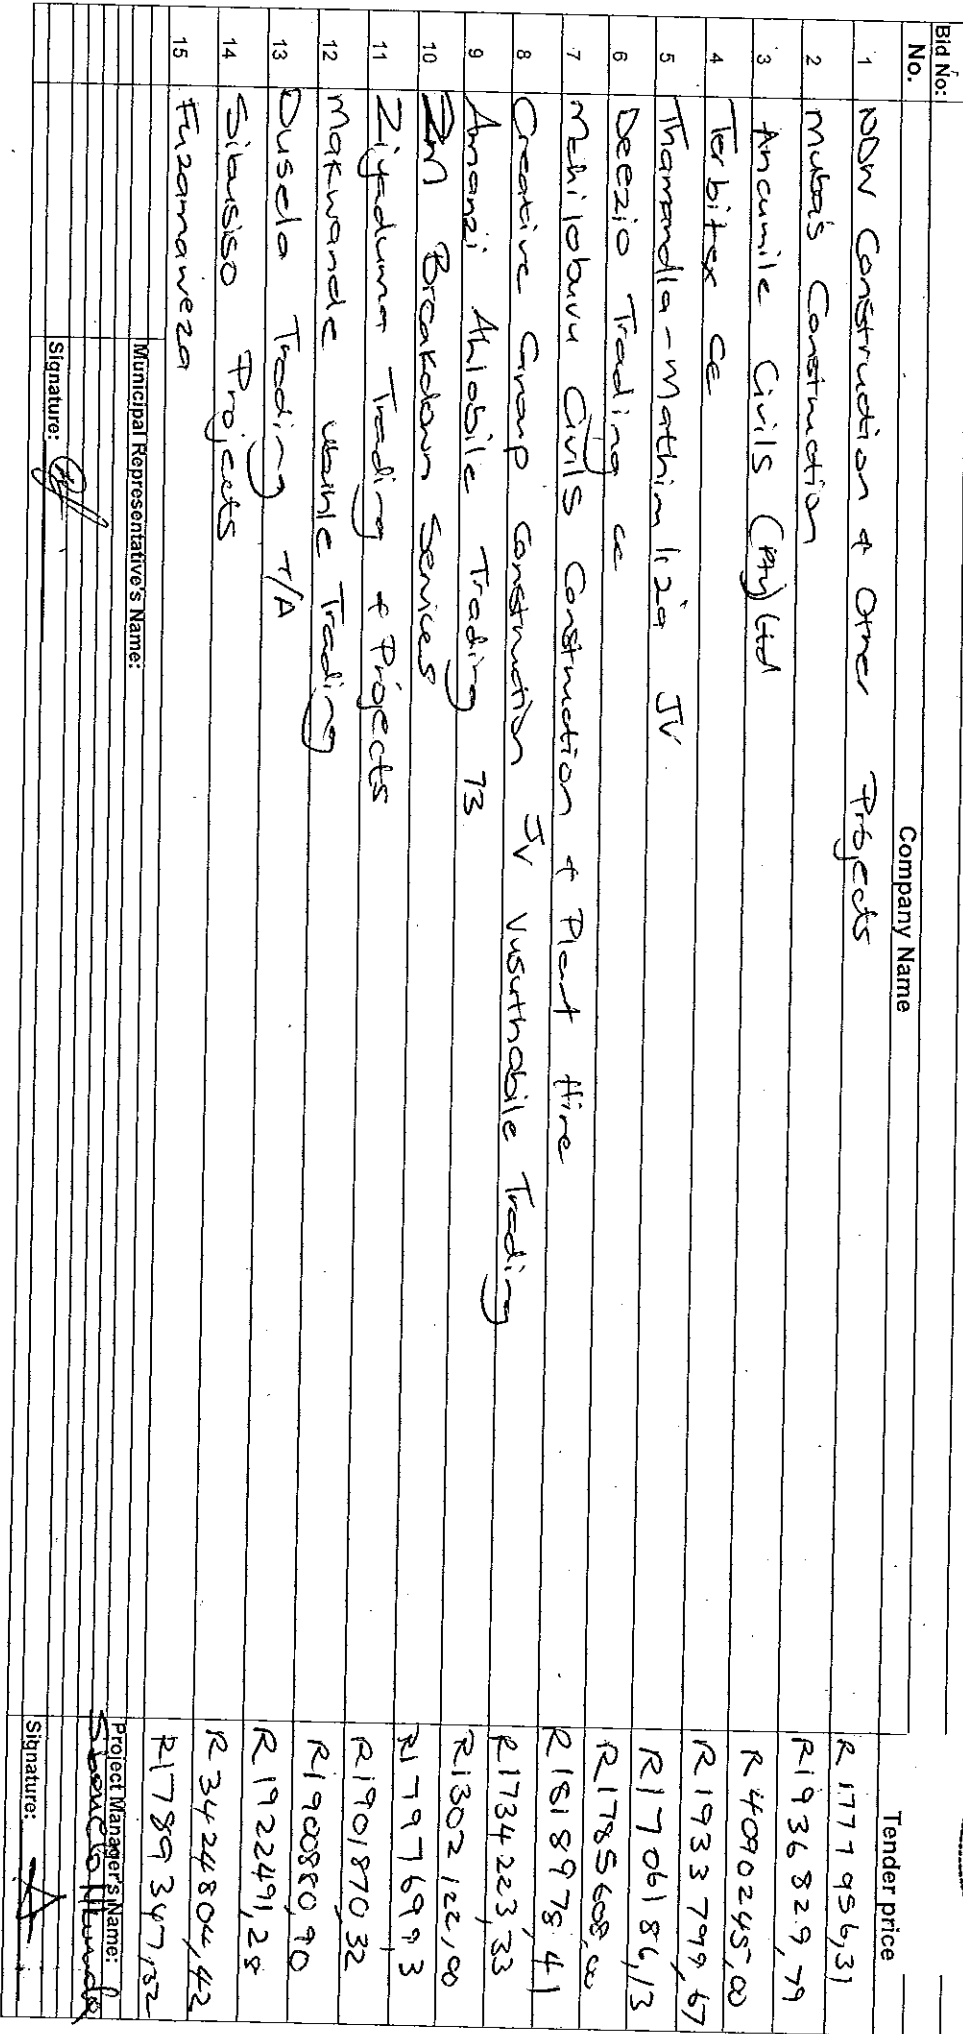 Bid No:
No. Company Name Tender price
1 NDW Construction + Other Projects R 1777956,31
2 Muba's Construction R1936829,79
3 Ancumile Civils (Pty) Ltd R 4090245,00
4 Terbitex cc R1933799,67
5 Thamandla-Mathimliza JV R1706186,13
6 Deezio Trading cc R1785608,00
7 Mahilobuvu Civils Construction + Plant Hire R1818978.41
8 Creative Group Construction JV Vusuthabile Trading R1734223,33
9 Amanzi Ahlobile Trading 73 R1302122,00
10 ZM Breakdown Services R1797769,93
11 Ziyaduma Trading + Projects R1901870,32
12 Makwande Trading R1900880,90
13 Dusela Trading T/A R1922491,28
14 Sibusiso Projects R3424804,42
15 Fuzamaweza R1789347,32
Municipal Representative's Name: Project Manager's Name:
Signature: Signature: